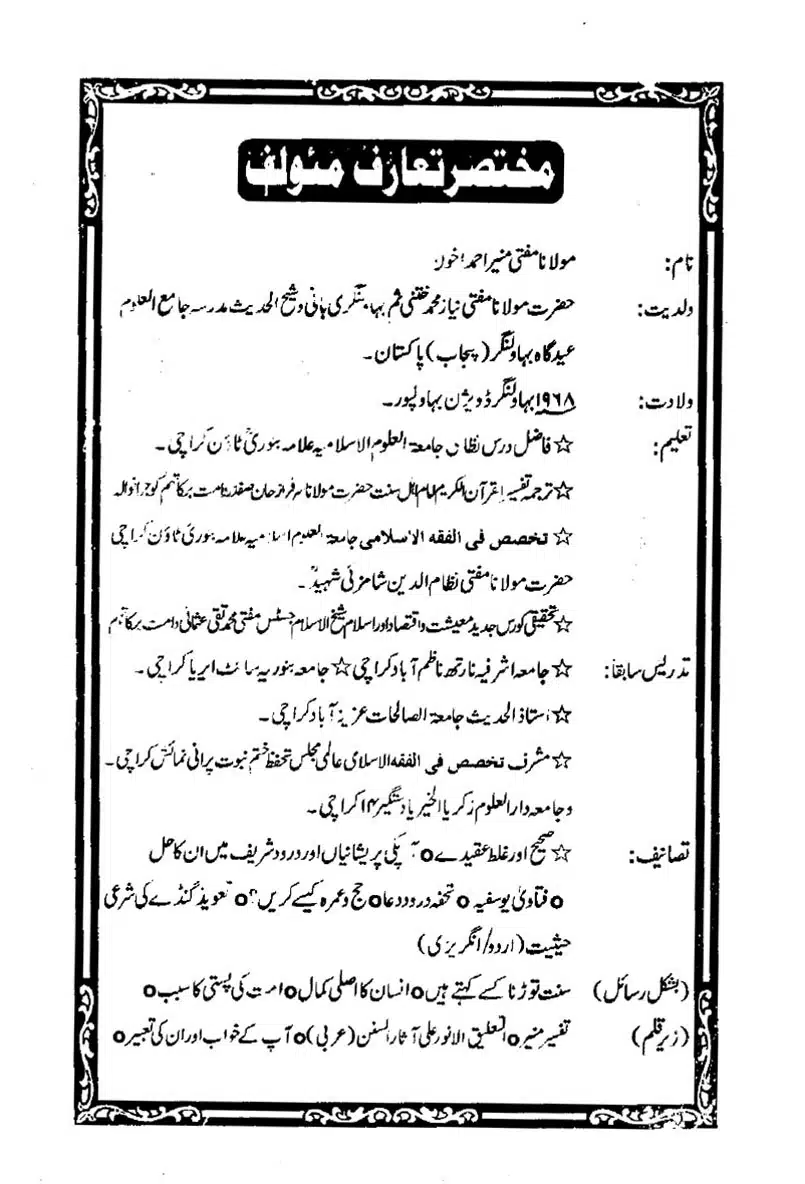 مختصر تعارف مئولف
نام: مولانا مفتی منیر احمد اخون
ولدیت: حضرت مولانا مفتی نیاز محمد ختنی ثم بہاولنگری بانی و شیخ الحدیث مدرسہ جامع العلوم
عیدگاہ بہاولنگر (پنجاب) پاکستان۔
ولادت: ۱۹۶۸ بہاولنگر ڈویژن بہاولپور۔
تعلیم: ☆ فاضل درس نظامی جامعۃ العلوم الاسلامیہ علامہ بنوریؒ ٹاؤن کراچی۔
☆ ترجمہ تفسیر القرآن الکریم امام اہل سنت حضرت مولانا سرفراز خان صفدر دامت برکاتہم گوجرانوالہ
☆ تخصص فی الفقہ الاسلامی جامعۃ العلوم اسلامیہ علامہ بنوری ٹاؤن کراچی
حضرت مولانا مفتی نظام الدین شامزئی شہیدؒ۔
☆ تحقیقی کورس جدید معیشت و اقتصاد اور اسلام شیخ الاسلام جسٹس مفتی محمد تقی عثمانی دامت برکاتہم
تدریس سابقا: ☆ جامعہ اشرفیہ نارتھ ناظم آباد کراچی ☆ جامعہ بنوریہ سائٹ ایریا کراچی۔
☆ استاذ الحدیث جامعۃ الصالحات عزیز آباد کراچی۔
☆ مشرف تخصص فی الفقہ الاسلامی عالمی مجلس تحفظ ختم نبوت پرانی نمائش کراچی۔
و جامعہ دارالعلوم زکریا الخیریا دستگیر ۱۴ کراچی۔
تصانیف: ☆ صحیح اور غلط عقیدے o آپکی پریشانیاں اور درود شریف میں ان کا حل
o فتاویٰ یوسفیہ o تحفہ درود و دعا o حج و عمرہ کیسے کریں؟ o تعویذ گنڈے کی شرعی
حیثیت (اردو/انگریزی)
(بشکل رسائل) سنت توڑنا کسے کہتے ہیں o انسان کا اصلی کمال o امت کی پستی کا سبب o
(زیر قلم) تفسیر منیر o التعلیق الانور علی آثار السنن (عربی) o آپ کے خواب اور ان کی تعبیر o